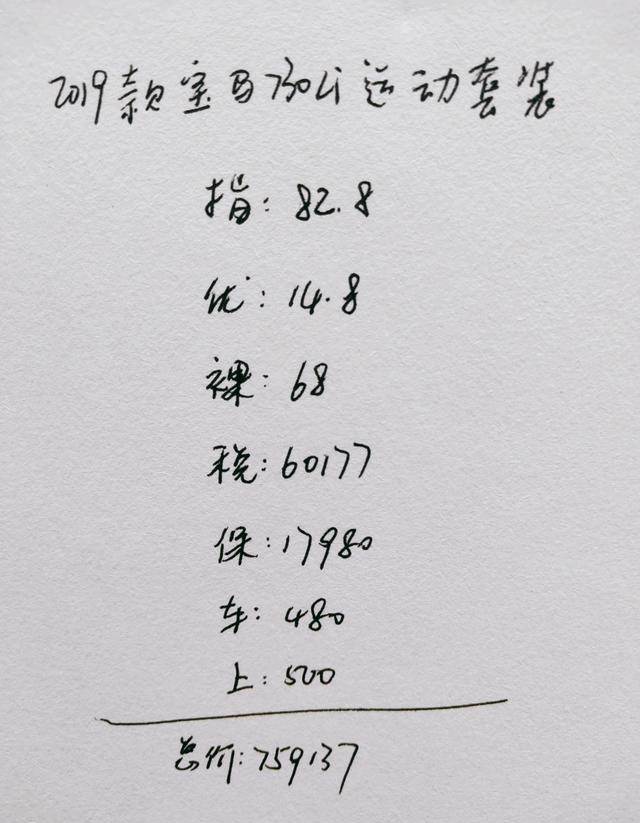 2019款宝马730Li运动套装
指: 82.8
优: 14.8
裸: 68
税: 60177
保: 17980
车: 480
上: 500
总价: 759137